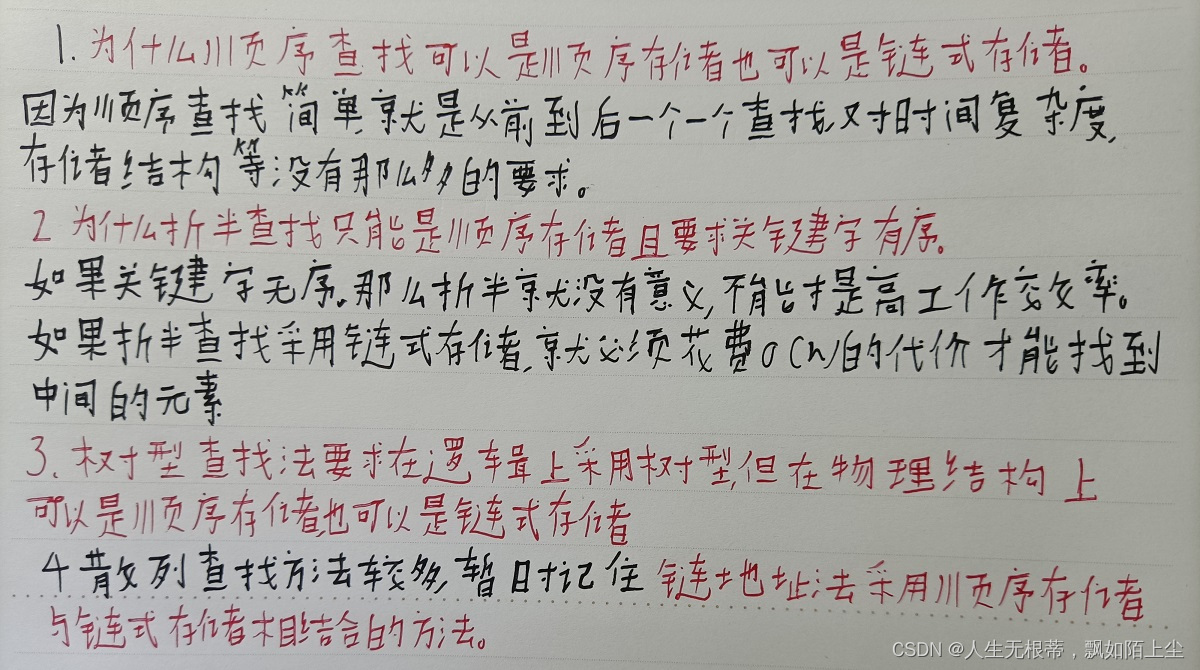 1. 为什么顺序查找可以是顺序存储也可以是链式存储。
因为顺序查找简单,就是从前到后一个一个查找,对时间复杂度,
存储结构等没有那么多的要求。
2 为什么折半查找只能是顺序存储且要求关键字有序。
如果关键字无序。那么折半就没有意义,不能提高工作效率。
如果折半查找采用链式存储,就必须花费O(n)的代价才能找到
中间的元素
3. 树型查找法要求在逻辑上采用树型,但在物理结构上
可以是顺序存储,也可以是链式存储
4 散列查找方法较多,暂时记住链地址法采用顺序存储
与链式存储相结合的方法。
CSDN @人生无根蒂，飘如陌上尘